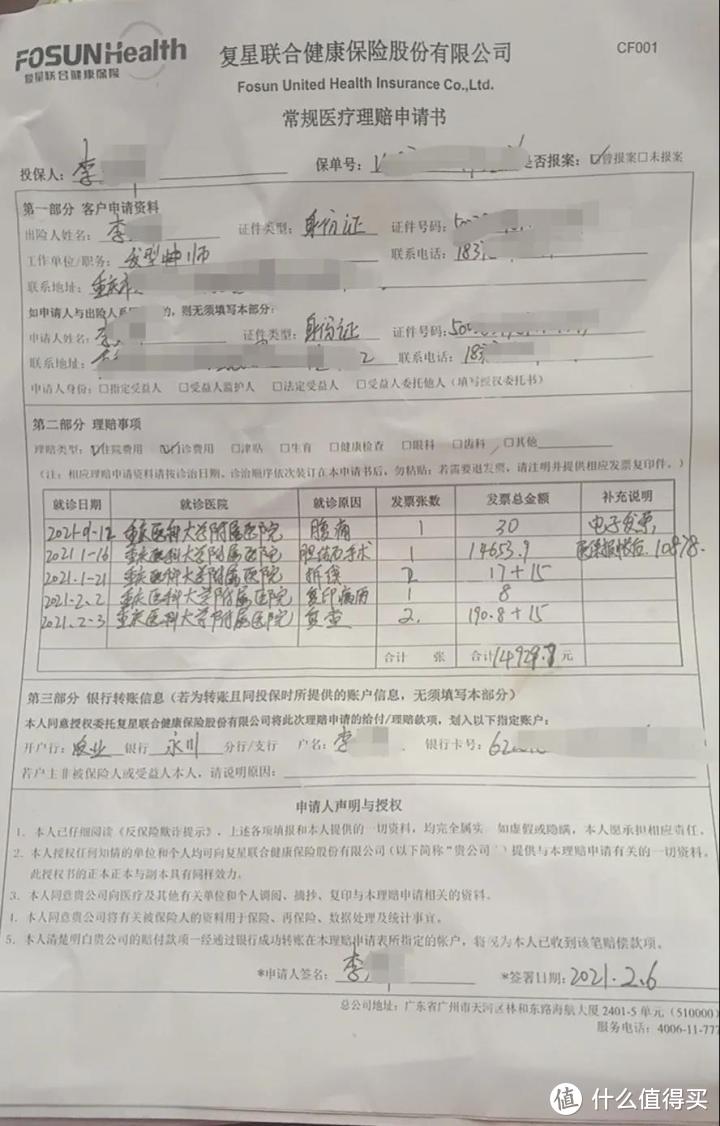 FOSUNHealth
复星联合健康保险
复星联合健康保险股份有限公司
CF001
Fosun United Health Insurance Co.,Ltd.
常规医疗理赔申请书
投保人: 李 保单号: 是否报案: ☑曾报案□未报案
第一部分 客户申请资料
出险人姓名: 李 证件类型: 身份证 证件号码: 50
工作单位/职务: 发型师 联系电话: 183
联系地址: 重庆市
如申请人与出险人 的, 则无须填写本部分:
申请人姓名: 李 证件类型: 身份证 证件号码: 500
联系地址: 2 联系电话: 18
申请人身份: □指定受益人 □受益人监护人 □法定受益人 □受益人委托他人(填写授权委托书)
第二部分 理赔事项
理赔类型: ☑住院费用 ☑门诊费用 □津贴 □生育 □健康检查 □眼科 □齿科 □其他
(注: 相应理赔申请资料请按诊治日期、诊治顺序依次装订在本申请书后, 勿粘贴; 若需要退发票, 请注明并提供相应发票复印件。)
就诊日期 就诊医院 就诊原因 发票张数 发票总金额 补充说明
重庆医科大学附属医院 腹痛 1 30 电子发票,
2021.1-16 重庆医科大学附属医院 手术 1 14653.9 医保报账后10878.
2021.1-21 重庆医科大学附属医院 拆线 2 17+15
2021.2.2 重庆医科大学附属医院 复印病历 1 8
2021.2-3 重庆医科大学附属医院 复查 2. 190.8+15
合计 张 合计 元
第三部分 银行转账信息(若为转账且同投保时所提供的账户信息, 无须填写本部分)
本人同意授权委托复星联合健康保险股份有限公司将此次理赔申请的给付/理赔款项, 划入以下指定账户:
开户行: 农业 银行 永川 分行/支行 户名: 李 银行卡号: 62
若户主非被保险人或受益人本人, 请说明原因:
申请人声明与授权
1. 本人已仔细阅读《反保险欺诈提示》, 上述各项填报和本人提供的一切资料, 均完全属实 如虚假或隐瞒, 本人愿承担相应责任。
2. 本人授权任何知情的单位和个人均可向复星联合健康保险股份有限公司(以下简称“贵公司”)提供与本理赔申请有关的一切资料。
此授权书的正本正本与副本具有同样效力。
3. 本人同意贵公司向医疗及其他有关单位和个人调阅、摘抄、复印与本理赔申请相关的资料。
4. 本人同意贵公司将有关被保险人的资料用于保险、再保险、数据处理及统计事宜。
5. 本人清楚明白贵公司的赔付款项一经通过银行成功转账在本理赔申请表所指定的帐户, 将视为本人已收到该笔赔偿款项。
*申请人签名: 李 *签署日期: 2021.2.6
总公司地址: 广东省广州市天河区林和东路海航大厦 2401-5 单元 (510000)
服务电话: 4006-11-777
值 什么值得买